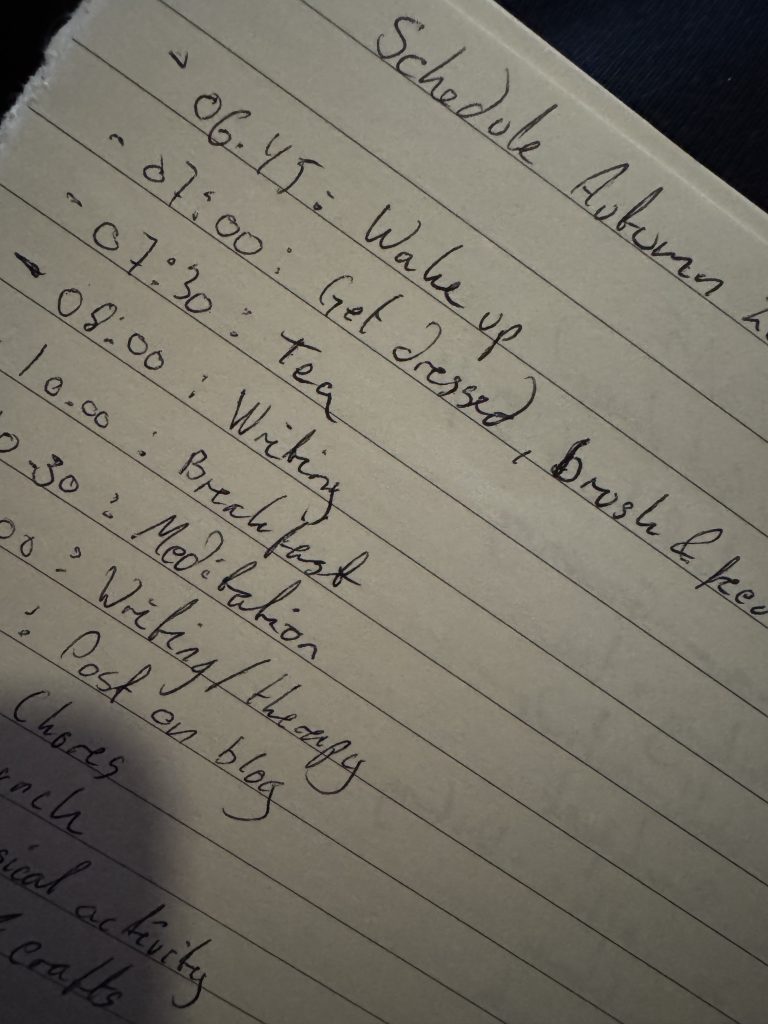 Schedule Autumn
- 06.45: Wake up
- 07:00: Get dressed, brush &
- 07:30: Tea
- 08:00: Writing
10.00: Breakfast
0.30: Meditation
00: Writing/therapy
: Post on blog
Chores
nch
sical activity
crafts